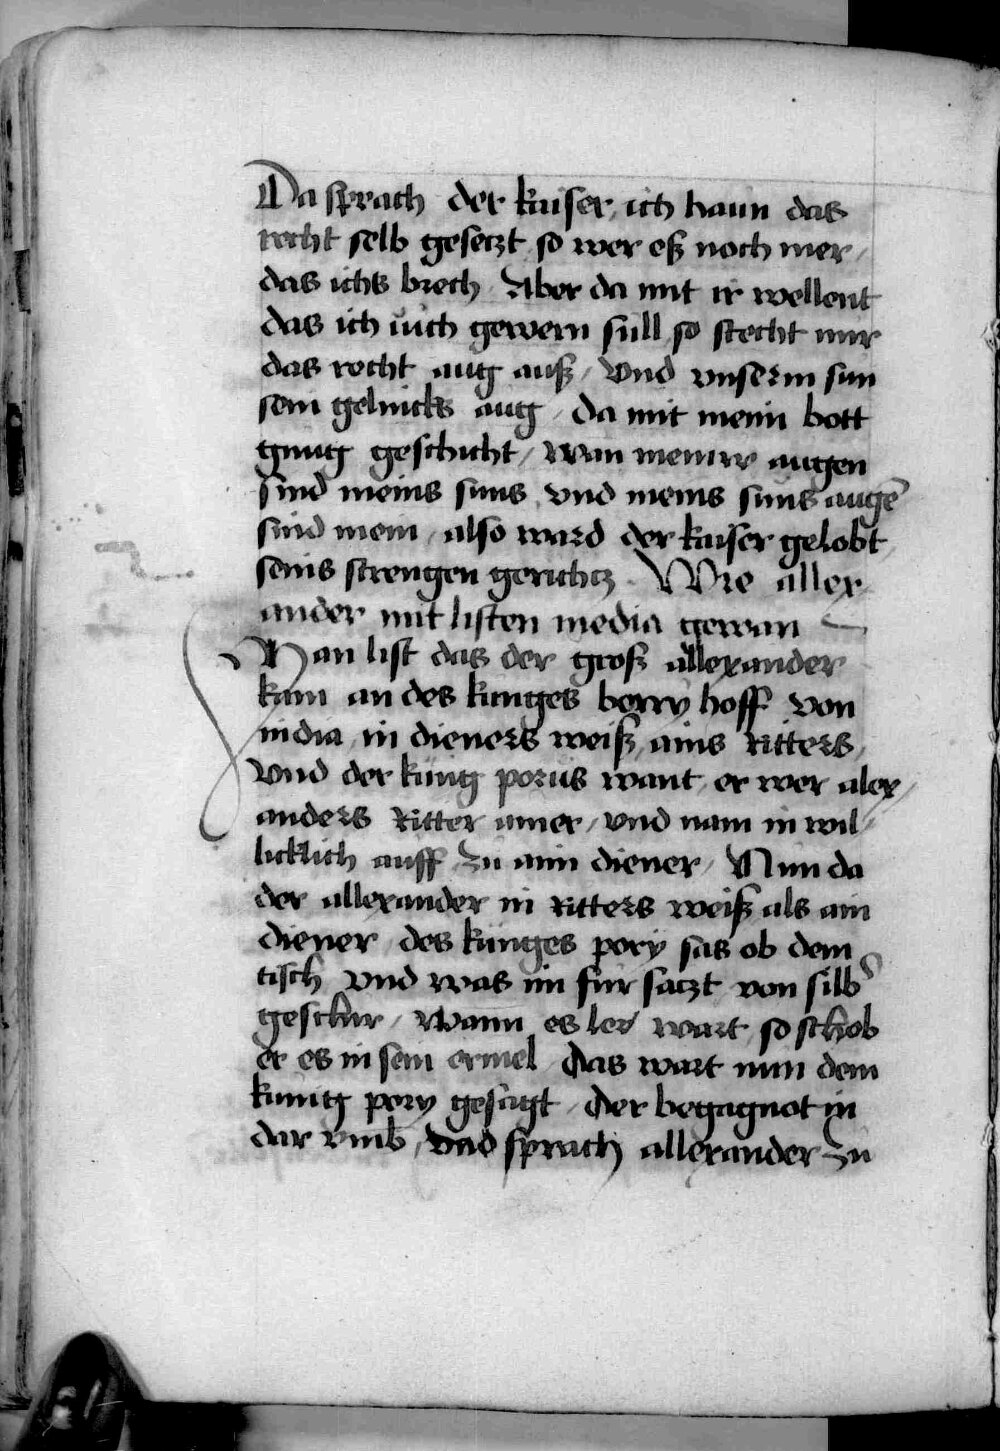 Da sprach der kaiser, ich haun das
recht selb gesetzt so wer eß noch mer /
das ichs brech / Aber da mit ir wellent
das ich üch gewern süll so stecht mir
das recht aug auß / Vnd vnserm sun
sein gelincks aug / da mit mein bott
gnug geschicht / Wan meinw augen
sind meins suns vnd meins suns auge͂
sind mein / also ward der kaiser gelobt /
seins strengen gerichtz Wie allex
ander mit listen media gewan
Man list das der groß allexander
kam an des kunges borry hoff von
india in dieners weiß / ains Ritters /
Vnd der küng porüs want / er wer alex /
anders Ritter ainer / vnd nam in wil /
licklich auff zu aim diener / Nun da
der allexander in Ritters weiß als ain
diener des künges pory sas ob dem
tisch vnd was im für satzt von silb͛
geschir / Wann es ler wart / so schob
er es in sein ermel / das wart nun dem
kunig pory gesagt / der begagnot in
dar vmb / vnd sprach allexander zu